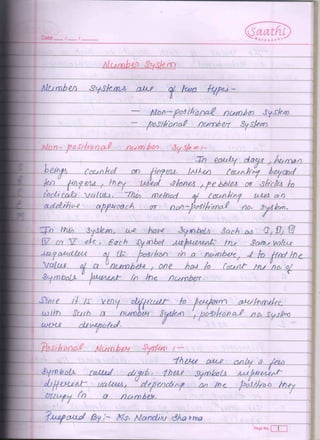 Saathi
Date ___/___/___
Number System
Number systems are of two types:-
— Non-positional number system
— positional number system
Non-positional number system:-
In early days, human
beings counted on fingers. When counting beyond
ten fingers, they used stones, pebbles or sticks to
indicate values. This method of counting uses an
additive approach or non-positional no. system.
In this system, we have symbols such as I, II, III
IV or V etc. Each symbol represents the same value
regardless of its position in a number, & to find the
value of a number, one has to count the no. of
symbols present in the number.
Since it is very difficult to perform arithmetic,
with such a number system, positional no. system
were developed.
Positional Number System :-
There are only a few
symbols called digits. These symbols represent
different values, depending on the position they
occupy in a number.
Prepared By:- Ms. Nandini Sharma
Page No. 1